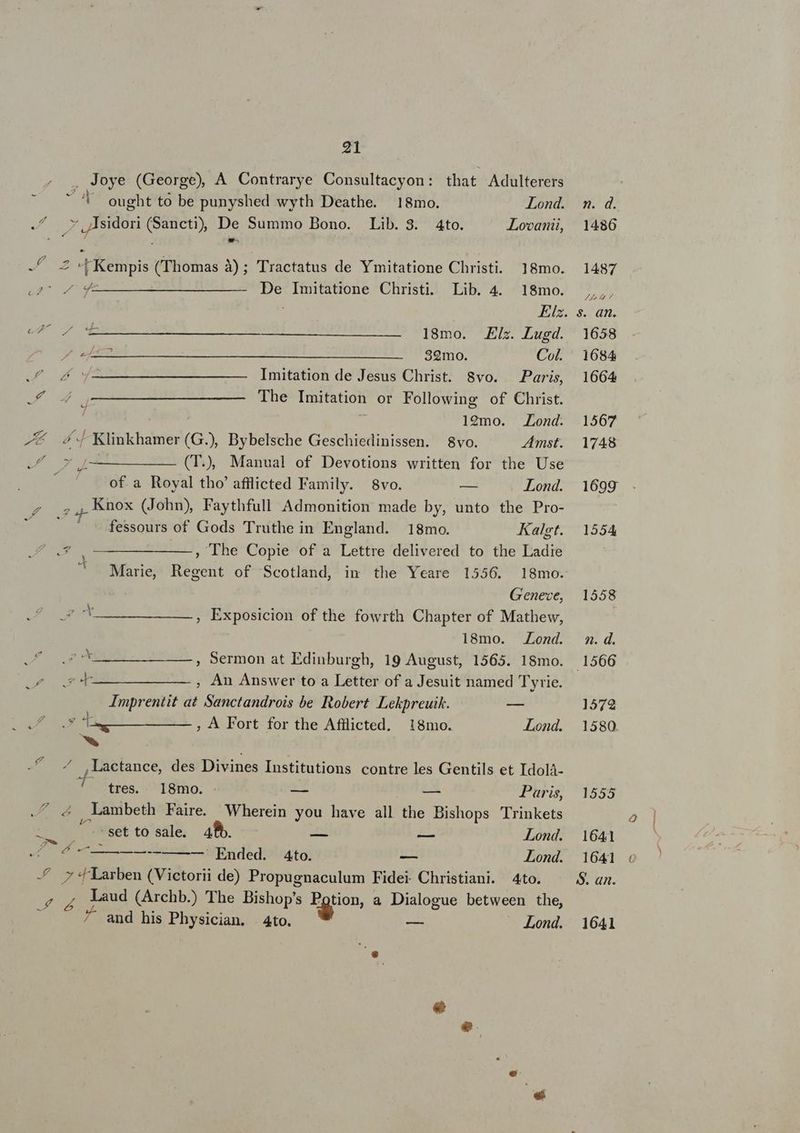 21
Joye (George), A Contrarye Consultacyon: that Adulterers
ought to be punyshed wyth Deathe. 18mo. Lond. n. d.
Isidori (Sancti), De Summo Bono. Lib. 3. 4to. Lovanii, 1486
Kempis (Thomas à); Tractatus de Ymitatione Christi. 18mo. 1487
——— De Imitatione Christi. Lib. 4. 18mo.
Elz. s. an.
——— 18mo. Elz. Lugd. 1658
——— 32mo. Col. 1684
——— Imitation de Jesus Christ. 8vo. Paris, 1664
——— The Imitation or Following of Christ.
12mo. Lond. 1567
Klinkhamer (G.), Bybelsche Geschiedinissen. 8vo. Amst. 1748
——— (T.), Manual of Devotions written for the Use
of a Royal tho' afflicted Family. 8vo. — Lond. 1699
Knox (John), Faythfull Admonition made by, unto the Pro-
fessours of Gods Truthe in England. 18mo. Kalgt. 1554
———, The Copie of a Lettre delivered to the Ladie
Marie, Regent of Scotland, in the Yeare 1556. 18mo.
Geneve, 1558
———, Exposicion of the fowrth Chapter of Mathew,
18mo. Lond. n. d.
———, Sermon at Edinburgh, 19 August, 1565. 18mo. 1566
———, An Answer to a Letter of a Jesuit named Tyrie.
Imprentit at Sanctandrois be Robert Lekpreuik. — 1572
———, A Fort for the Afflicted. 18mo. Lond. 1580
Lactance, des Divines Institutions contre les Gentils et Idolà-
tres. 18mo. — — Paris, 1555
Lambeth Faire. Wherein you have all the Bishops Trinkets
set to sale. 4to. — — Lond. 1641
——— Ended. 4to. — Lond. 1641
Larben (Victorii de) Propugnaculum Fidei Christiani. 4to. S. an.
Laud (Archb.) The Bishop's Potion, a Dialogue between the,
and his Physician. 4to. — Lond. 1641